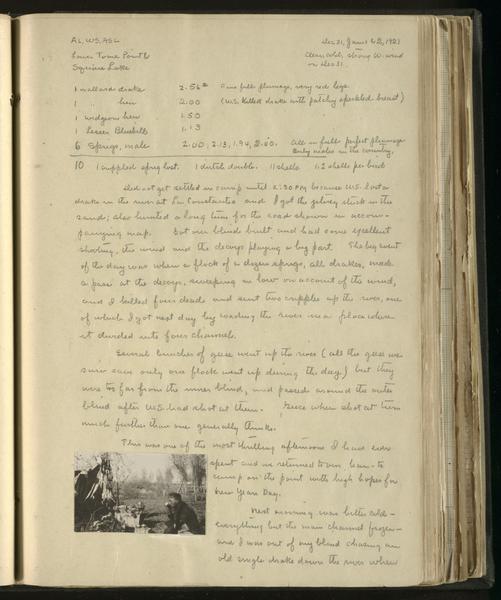 AL, WS, ASL
Dec 31, Jan 1 & 2, 1921
Lower Tome Point to
Clear, cold, strong W. wind
on Dec 31.
1 mallard drake 2.56 in full plumage, very red legs
1 " hen 2.00 (W.S. killed drake with patchy speckled breast)
1 widgeon hen 1.50
1 Lesser Bluebill 1.13
6 Sprigs, male 2.00, 2.13, 1.94, 2.00. All in full perfect plumage
Only males in the country.
10 1 crippled sprig lost. 1 dutch double. 11 shells 1.2 shells per bird
Did not get settled in camp until 2:30 PM because W.S. lost a
drake in the river at La Constantia and I got the flivver stuck in the
sand; also hunted a long time for the road shown in accom-
panying map. Got our blinds built and had some excellent
shooting, the wind and the decoys playing a big part. The big event
of the day was when a flock of a dozen sprigs, all drakes, made
a pass at the decoys, sweeping in low on account of the wind,
and I killed four dead and sent two cripples up the river, one
of which I got next day by wading the river in a place where
it divided into four channels.
Several bunches of geese went up the river (all the geese we
saw only one flock went up during the day) but they
were too far from the inner blind, and passed around the outer
blind after W.S. had shot at them. Geese when shot at turn
much further than one generally thinks.
This was one of the most thrilling afternoons I have ever
spent and we returned to our lean-to
camp on the point with high hopes for
New Years Day.
Next morning was bitter cold -
everything but the main channel frozen -
and I was out of my blind chasing an
old single drake down the river when